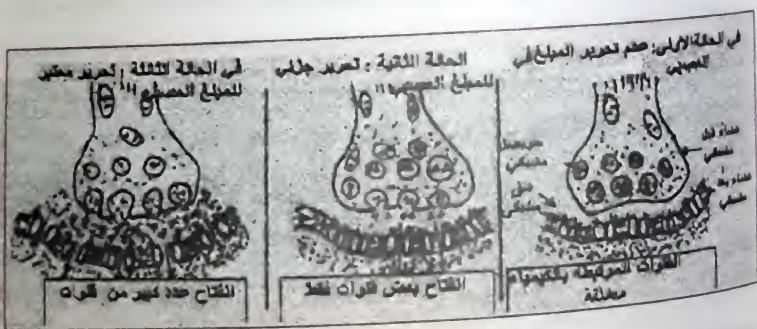 في الحالة الأولى: عدم تحرير المبلغ في
العصبي
غشاء قبل
مشبكي
حويصل
مشبكي
غشاء بعد
مشبكي
شق
مشبكي
القنوات المرتبطة بالكيمياء
مغلقة
الحالة الثانية : تحرير جزئي
للمبلغ العصبي
انفتاح بعض قنوات فقط
في الحالة الثالثة : تحرير معتبر
للمبلغ العصبي
انفتاح عدد كبير من قنوات